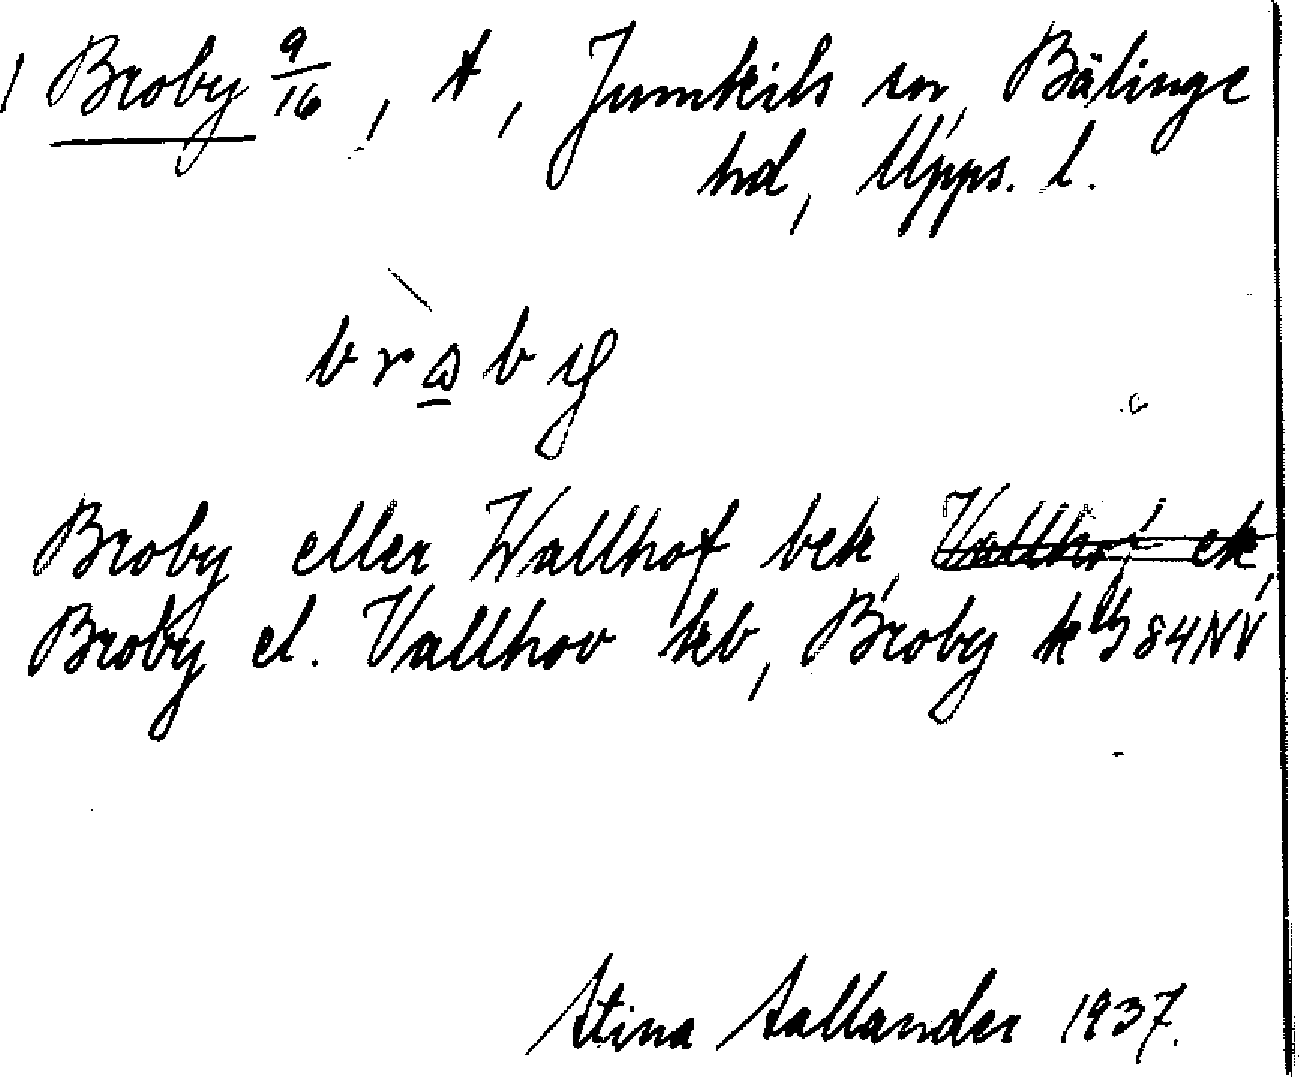 1 Broby 9/16, A, Jumkils sn, Bälinge
hd, Upps. l.
Broby eller Wallhof bek,
Broby el. Vallhov kb, Broby k 84NV
Stina Sallander 1937.